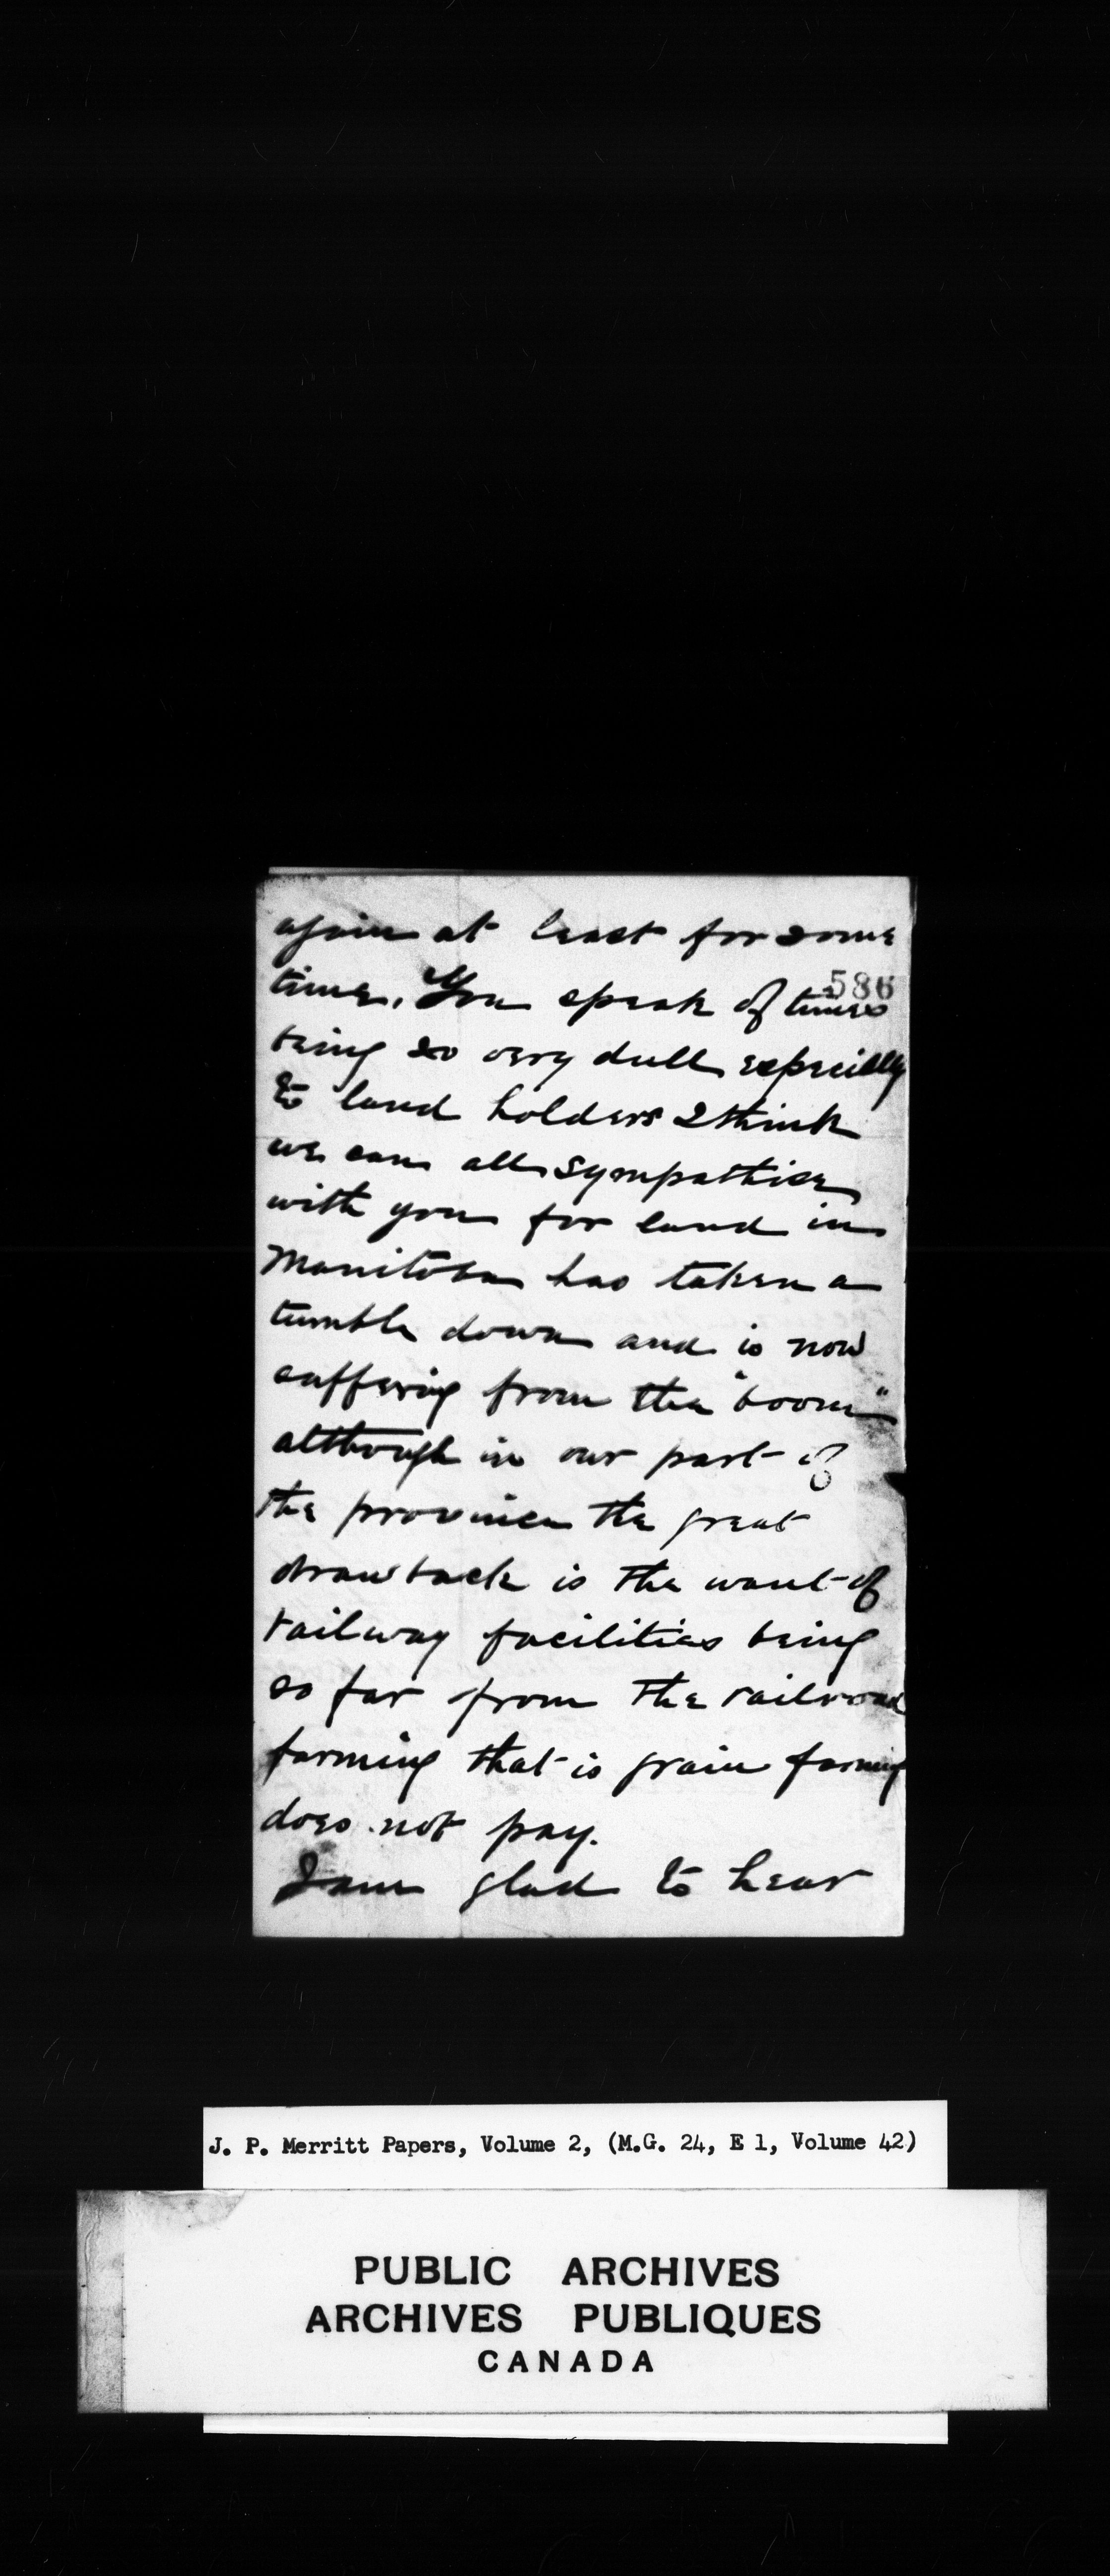 again at least for some
586
time. You speak of times
being so very dull especilly
to land holders I think
we can all sympathise
with you for land in
Manitoba has taken a
tumble down and is now
suffering from the "boom"
although in our part of
the province the great
drawback is the want of
railway facilities being
so far from the railroad
farming that is grain farming
does not pay.
I am glad to hear
J. P. Merritt Papers, Volume 2, (M.G. 24, E 1, Volume 42)
PUBLIC ARCHIVES
ARCHIVES PUBLIQUES
CANADA